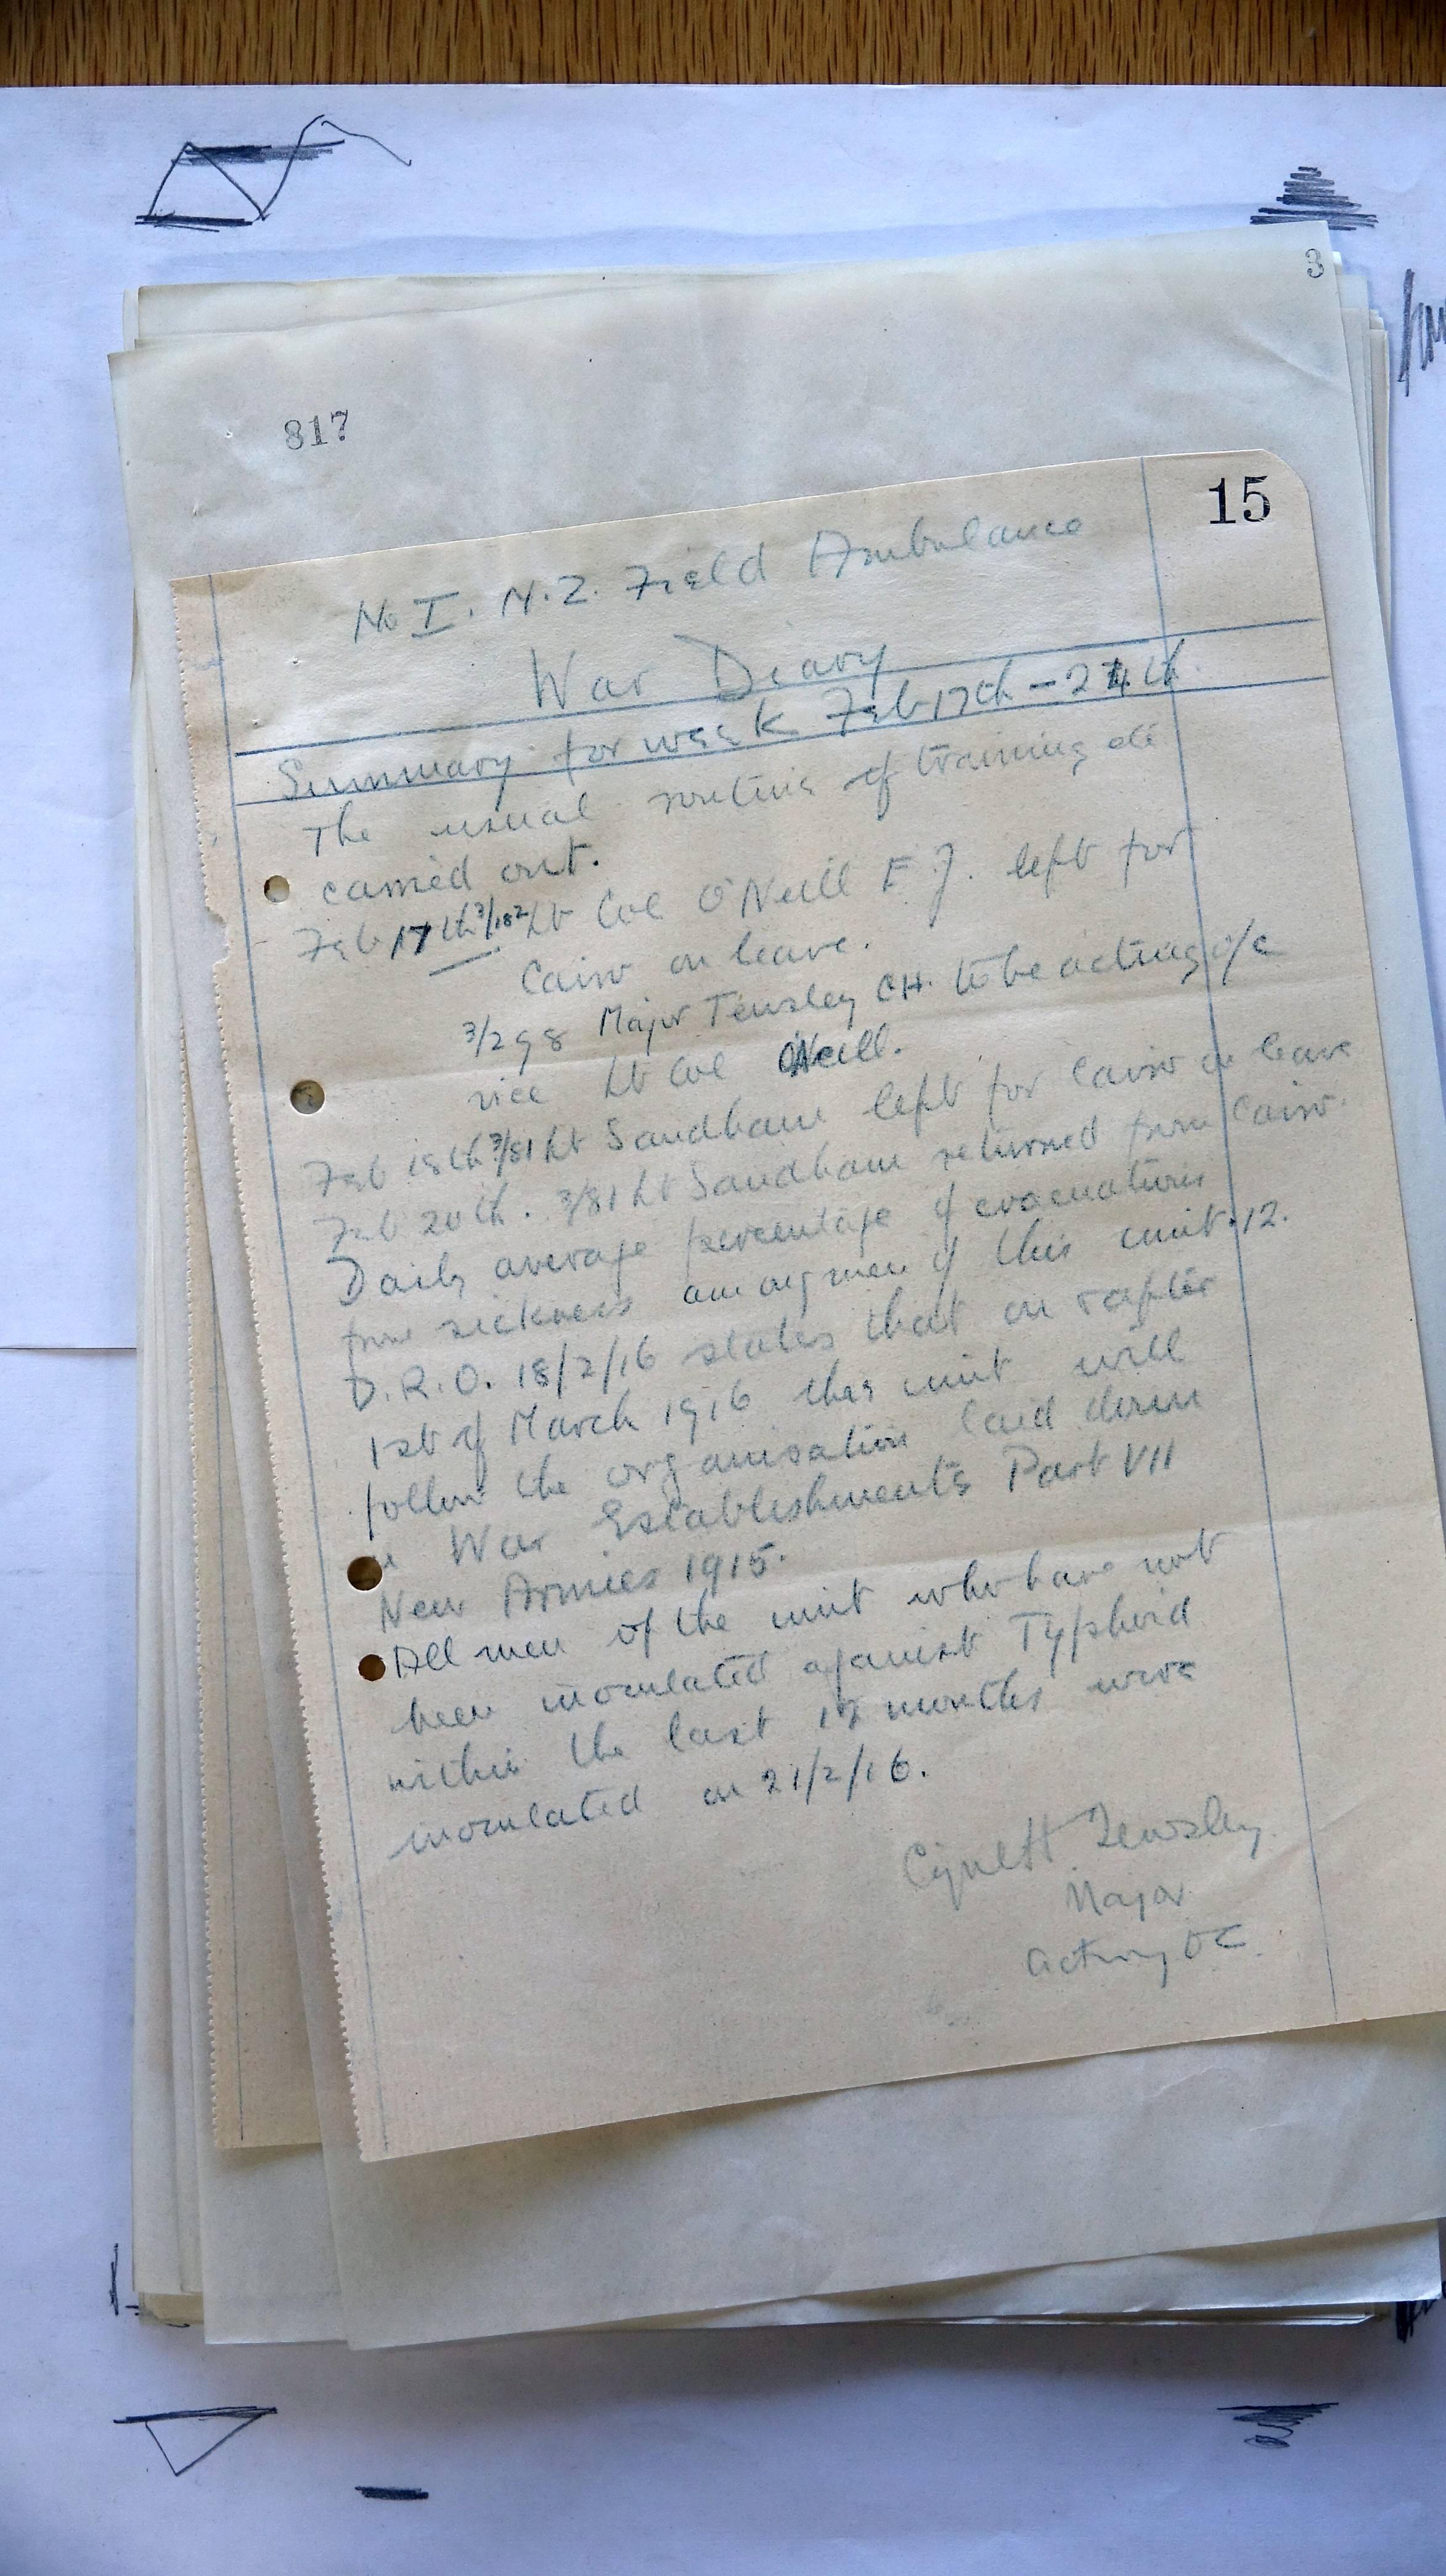 3
817
15
No I. N.Z. Field Ambulance
War Diary
Summary for week Feb 17th - 24th
The usual routine of training etc
carried out.
Feb 17th 3/182 Lt Col O'Neill E.J. left for
Cairo on leave.
3/298 Major Tewsley CH. to be acting o/c
vice Lt Col O'Neill.
Feb 18th 3/81 Lt Sandham left for Cairo on leave
Feb 20th. 3/81 Lt Sandham returned from Cairo.
Daily average percentage of evacuations
from sickness among men of this unit .12.
D.R.O. 18/2/16 states that on & after
1st of March 1916 this unit will
follow the organisation laid down
in War Establishments Part VII
New Armies 1915.
All men of the unit who have not
been inoculated against Typhoid
within the last 12 months were
inoculated on 21/2/16.
Cyril H. Tewsley
Major
acting OC.